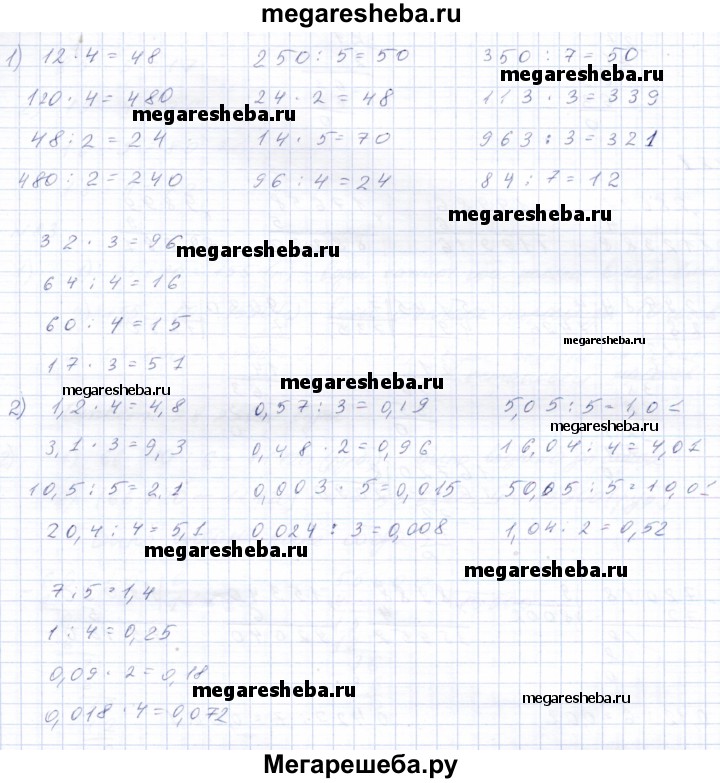 megaresheba.ru
1) 12 · 4 = 48 250 : 5 = 50 350 : 7 = 50
megaresheba.ru
120 · 4 = 480 24 · 2 = 48 113 · 3 = 339
megaresheba.ru
48 : 2 = 24 14 · 5 = 70 963 : 3 = 321
480 : 2 = 240 96 : 4 = 24 84 : 7 = 12
megaresheba.ru
32 · 3 = 96
megaresheba.ru
64 : 4 = 16
60 : 4 = 15
megaresheba.ru
17 · 3 = 51
megaresheba.ru
megaresheba.ru
2) 1,2 · 4 = 4,8 0,57 : 3 = 0,19 5,05 : 5 = 1,01
megaresheba.ru
3,1 · 3 = 9,3 0,48 · 2 = 0,96 16,04 : 4 = 4,01
10,5 : 5 = 2,1 0,003 · 5 = 0,015 50,05 : 5 = 10,01
20,4 : 4 = 5,1 0,024 : 3 = 0,008 1,04 · 2 = 0,52
megaresheba.ru
megaresheba.ru
7 : 5 = 1,4
1 : 4 = 0,25
0,09 · 2 = 0,18
megaresheba.ru
megaresheba.ru
0,018 · 4 = 0,072
Мегарешеба.ру